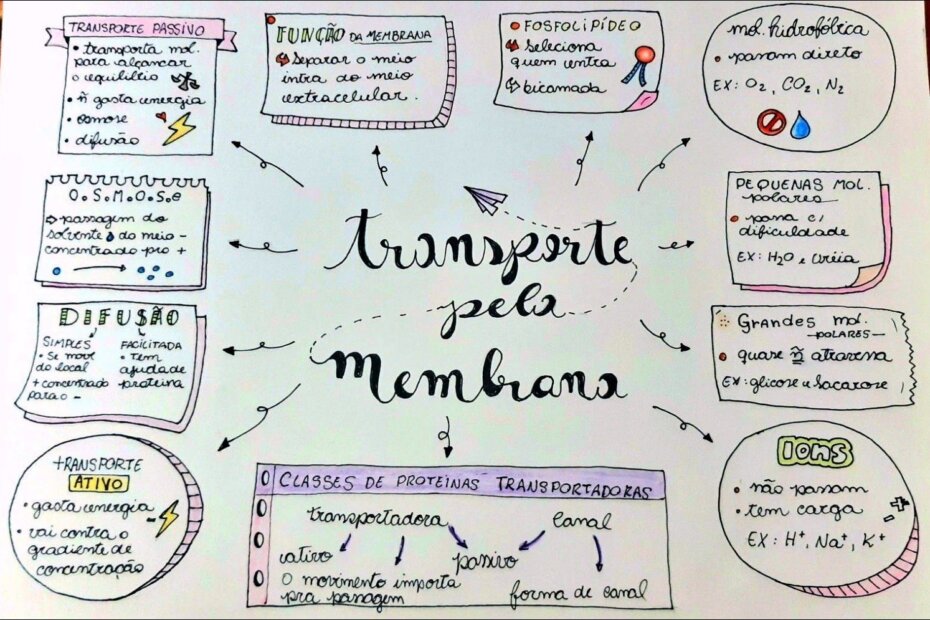 transporte
pela
Membrana
TRANSPORTE PASSIVO
• transporta mol.
para alcançar
o equilíbrio
• ñ gasta energia
• osmose
• difusão
FUNÇÃO DA MEMBRANA
Separar o meio
intra do meio
extracelular.
FOSFOLIPÍDEO
seleciona
quem entra
bicamada
mol. hidrofóbica
• passam direto
EX: O2, CO2, N2
O.S.M.O.S.e
⇨ passagem do
solvente do meio -
concentrado pro +
PEQUENAS MOL.
polares
• passa c/
dificuldade
EX: H2O e uréia
DIFUSÃO
SIMPLES
• Se move
do local
+ concentrado
para o -
FACILITADA
• tem
ajudade
proteína
Grandes mol.
-POLARES-
• quase ñ atravessa
EX: glicose e Sacarose
TRANSPORTE
ATIVO
• gasta energia
• vai contra o
gradiente de
concentração
CLASSES DE PROTEÍNAS TRANSPORTADORAS
transportadora
canal
ativo
passivo
O movimento importa
pra passagem
forma de canal
Ions
• não passam
• tem carga
EX: H+, Na+, K+